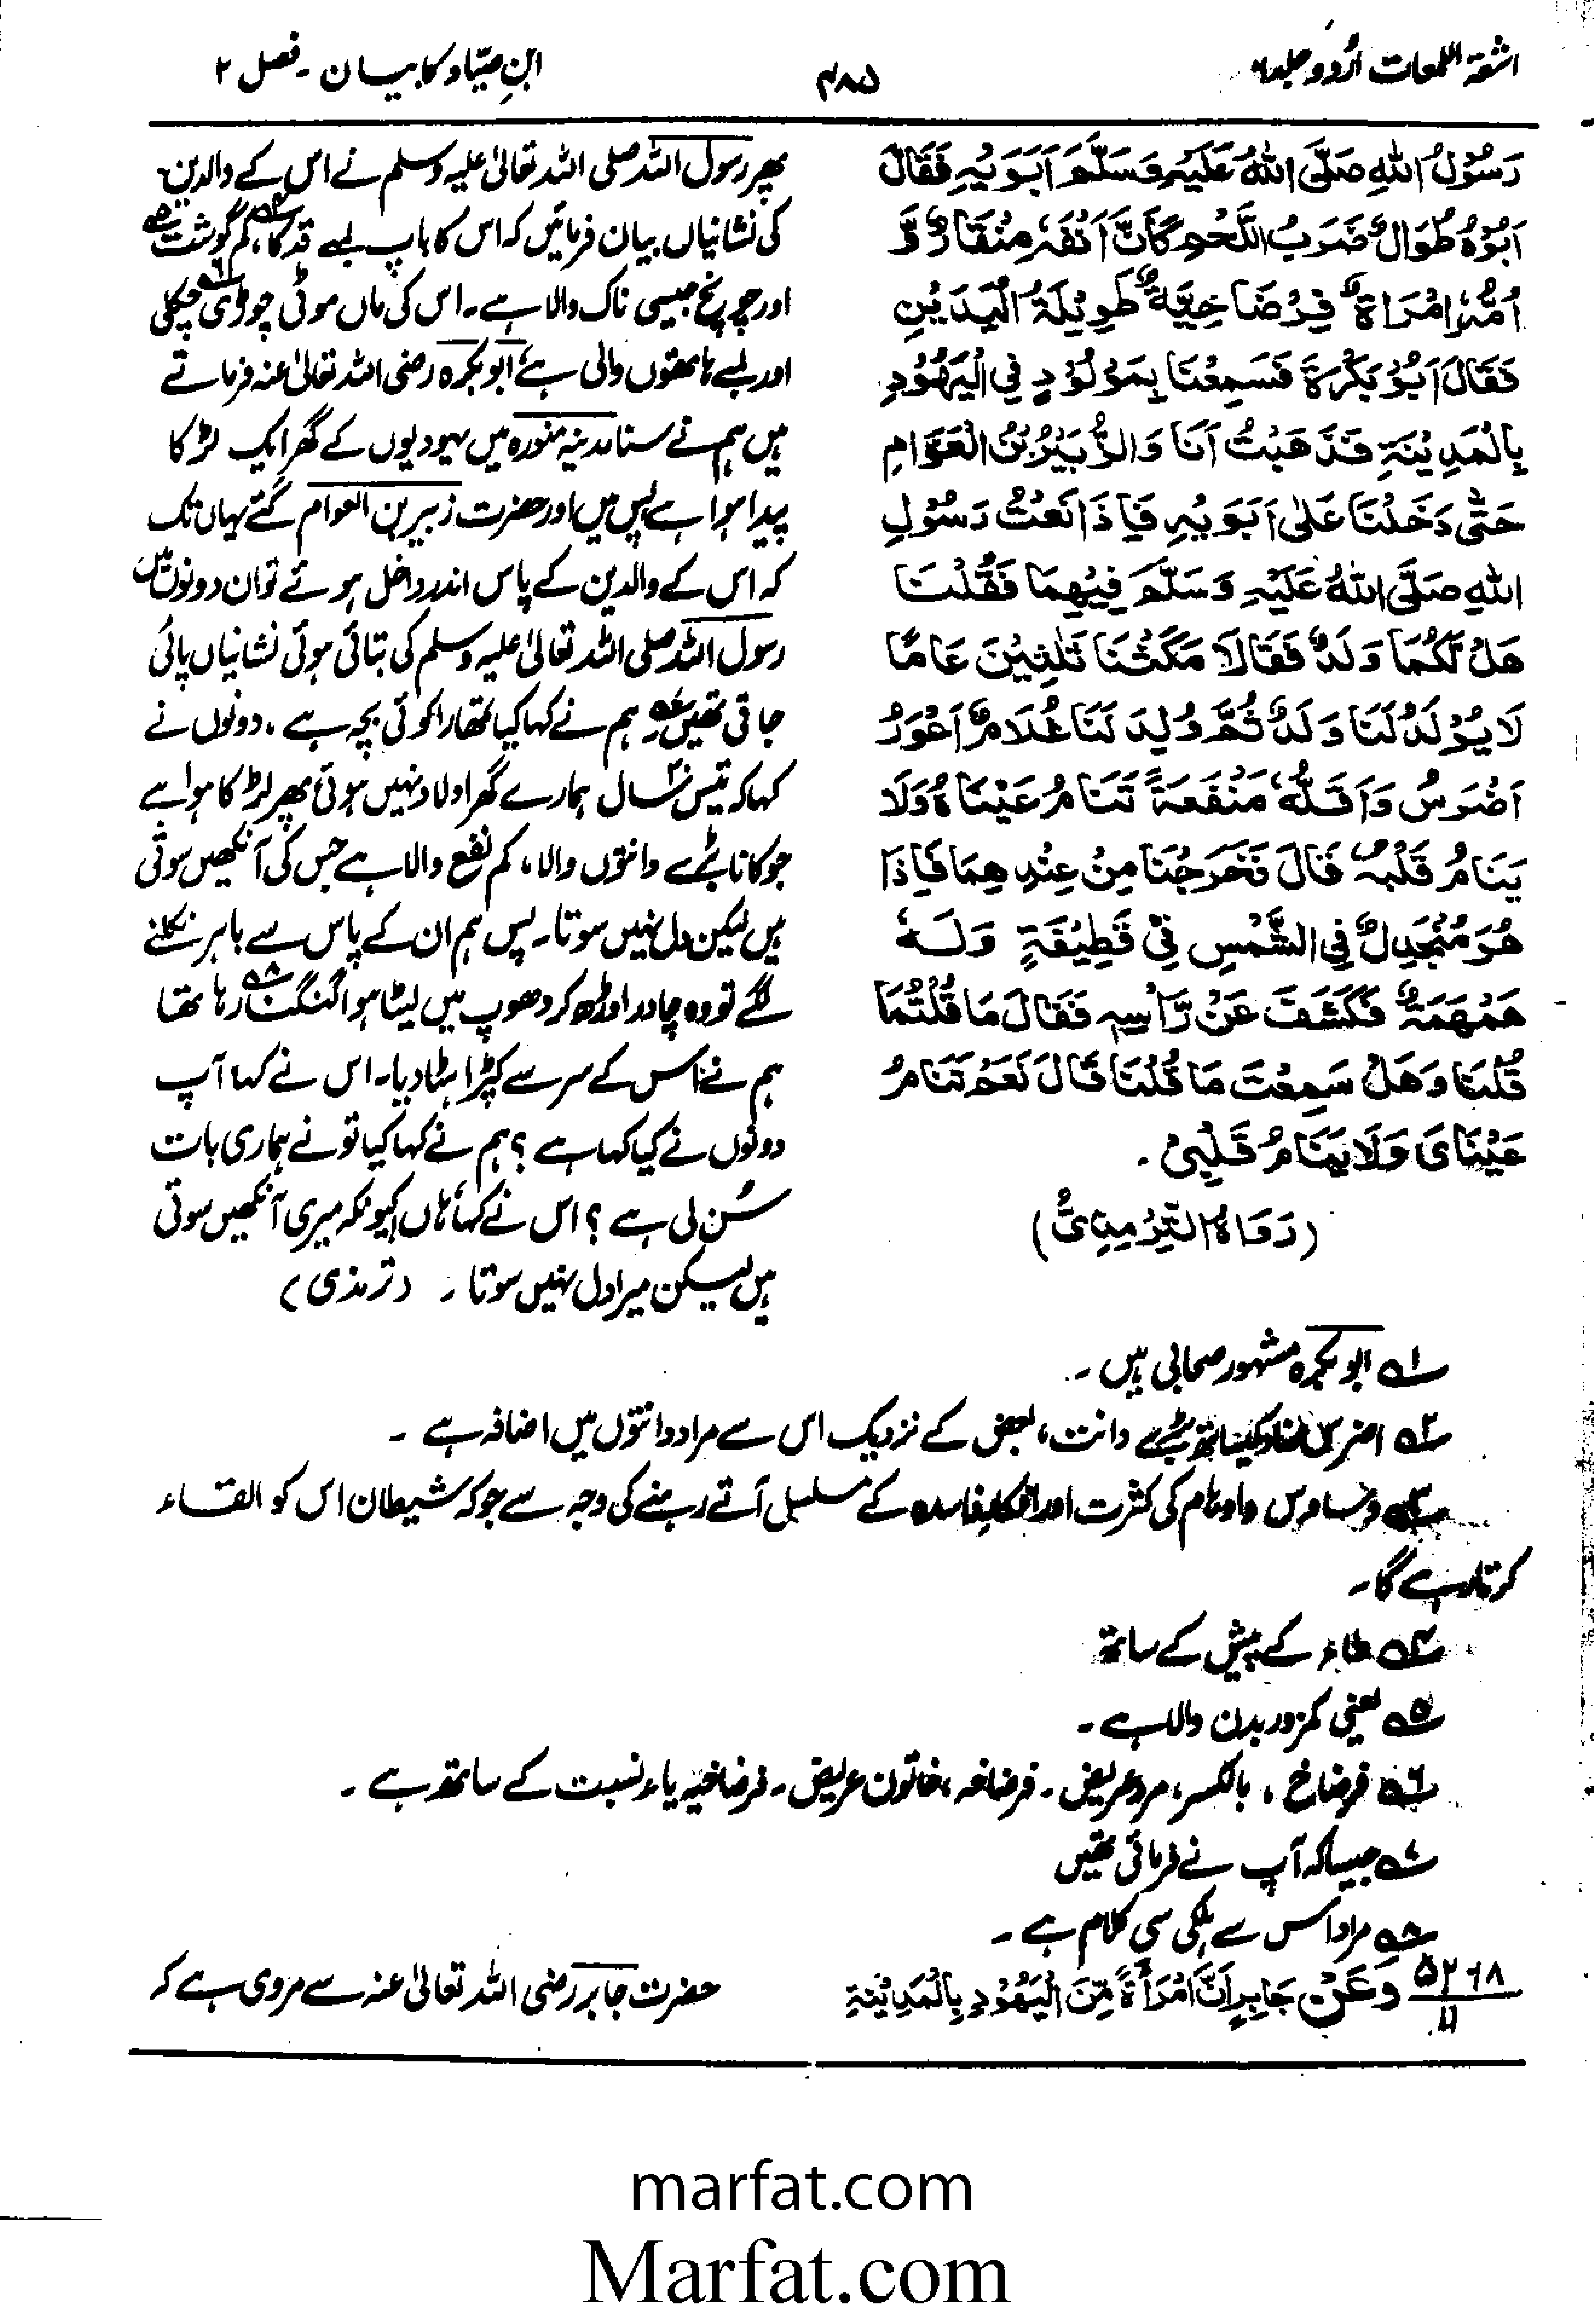 اشعۃ اللمعات اُردو جلد ۶
۴۸۵
ابنِ صیّاد کا بیان ۔ فصل ۲
رَسُوْلُ اللّٰهِ صَلَّى اللّٰهُ عَلَيْهِ وَسَلَّمَ اَبَوَيْهِ فَقَالَ
اَبُوْهُ طُوَالٌ ضَرْبُ اللَّحْمِ كَاَنَّ اَنْفَهٗ مِنْقَارٌ وَّ
اُمُّهٗ امْرَاَةٌ فِرْضَاخِيَّةٌ طَوِيْلَةُ الْيَدَيْنِ
فَقَالَ اَبُوْ بَكْرَةَ فَسَمِعْنَا بِمَوْلُوْدٍ فِي الْيَهُوْدِ
بِالْمَدِيْنَةِ فَذَهَبْتُ اَنَا وَالزُّبَيْرُ بْنُ الْعَوَّامِ
حَتّٰى دَخَلْنَا عَلٰى اَبَوَيْهِ فَاِذَا نَعْتُ رَسُوْلِ
اللّٰهِ صَلَّى اللّٰهُ عَلَيْهِ وَسَلَّمَ فِيْهِمَا فَقُلْنَا
هَلْ لَّكُمَا وَلَدٌ فَقَالَا مَكَثْنَا ثَلٰثِيْنَ عَامًا
لَا يُوْلَدُ لَنَا وَلَدٌ ثُمَّ وُلِدَ لَنَا غُلَامٌ اَعْوَرُ
اَضْرَسُ وَاَقَلُّهٗ مَنْفَعَةً تَنَامُ عَيْنَاهُ وَلَا
يَنَامُ قَلْبُهٗ قَالَ فَخَرَجْنَا مِنْ عِنْدِهِمَا فَاِذَا
هُوَ مُنْجَدِلٌ فِي الشَّمْسِ فِيْ قَطِيْفَةٍ وَلَهٗ
هَمْهَمَةٌ فَكَشَفَ عَنْ رَّاْسِهٖ فَقَالَ مَا قُلْتُمَا
قُلْنَا وَهَلْ سَمِعْتَ مَا قُلْنَا قَالَ نَعَمْ تَنَامُ
عَيْنَايَ وَلَا يَنَامُ قَلْبِيْ ۔
(رَوَاهُ التِّرْمِذِيُّ)
پھر رسول اللہ صلی اللہ تعالیٰ علیہ وسلم نے اس کے والدین
کی نشانیاں بیان فرمائیں کہ اس کا باپ لمبے قد کا ۴ ، کم گوشت ۵
اور چونچ جیسی ناک والا ہے۔ اس کی ماں موٹی چوڑی چپکلی ۶
اور لمبے ہاتھوں والی ہے، ابو بکرہ رضی اللہ تعالیٰ عنہ فرماتے
ہیں ہم نے سنا مدینہ منورہ میں یہودیوں کے گھر ایک لڑکا
پیدا ہوا ہے پس میں اور حضرت زبیر بن العوام گئے یہاں تک
کہ اس کے والدین کے پاس اندر داخل ہوئے تو ان دونوں میں
رسول اللہ صلی اللہ تعالیٰ علیہ وسلم کی بتائی ہوئی نشانیاں پائی
جاتی تھیں ۷ ہم نے کہا کیا تمھارا کوئی بچہ ہے ، دونوں نے
کہا کہ تیس سال ہمارے گھر اولاد نہیں ہوئی پھر لڑکا ہوا ہے
جو کانا بڑے دانتوں والا ، کم نفع والا ہے جس کی آنکھیں سوتی
ہیں لیکن دل نہیں سوتا۔ پس ہم ان کے پاس سے باہر نکلنے
لگے تو وہ چادر اوڑھ کر دھوپ میں لیٹا ہوا گنگنا رہا تھا ۸
ہم نے اس کے سر سے کپڑا ہٹا دیا۔ اس نے کہا آپ
دونوں نے کیا کہا ہے ؟ ہم نے کہا کیا تو نے ہماری بات
سُن لی ہے ؟ اس نے کہا ہاں کیونکہ میری آنکھیں سوتی
ہیں لیکن میرا دل نہیں سوتا ۔ (ترمذی)
۱ ابو بکرہ مشہور صحابی ہیں ۔
۲ اضرس بڑے دانت ، بعض کے نزدیک اس سے مراد دانتوں میں اضافہ ہے ۔
۳ وساوس و اوہام کی کثرت اور افکار فاسدہ کے مسلسل آتے رہنے کی وجہ سے جو کہ شیطان اس کو القاء
کرتا رہے گا۔
۴ طاء کے پیش کے ساتھ
۵ یعنی کمزور بدن والا ہے ۔
۶ فرضاخ ، بالکسر، مرد عریض ۔ فرضاخہ ، خاتون عریض ۔ فرضاخیہ یاء نسبت کے ساتھ ہے ۔
۷ جیسا کہ آپ نے فرمائی تھیں
۸ مراد اس سے ہلکی سی کلام ہے ۔
۵۲۶۸
۱۱
وَعَنْ جَابِرٍ اَنَّ امْرَاَةً مِّنَ الْيَهُوْدِ بِالْمَدِيْنَةِ
حضرت جابر رضی اللہ تعالیٰ عنہ سے مروی ہے کہ
marfat.com
Marfat.com